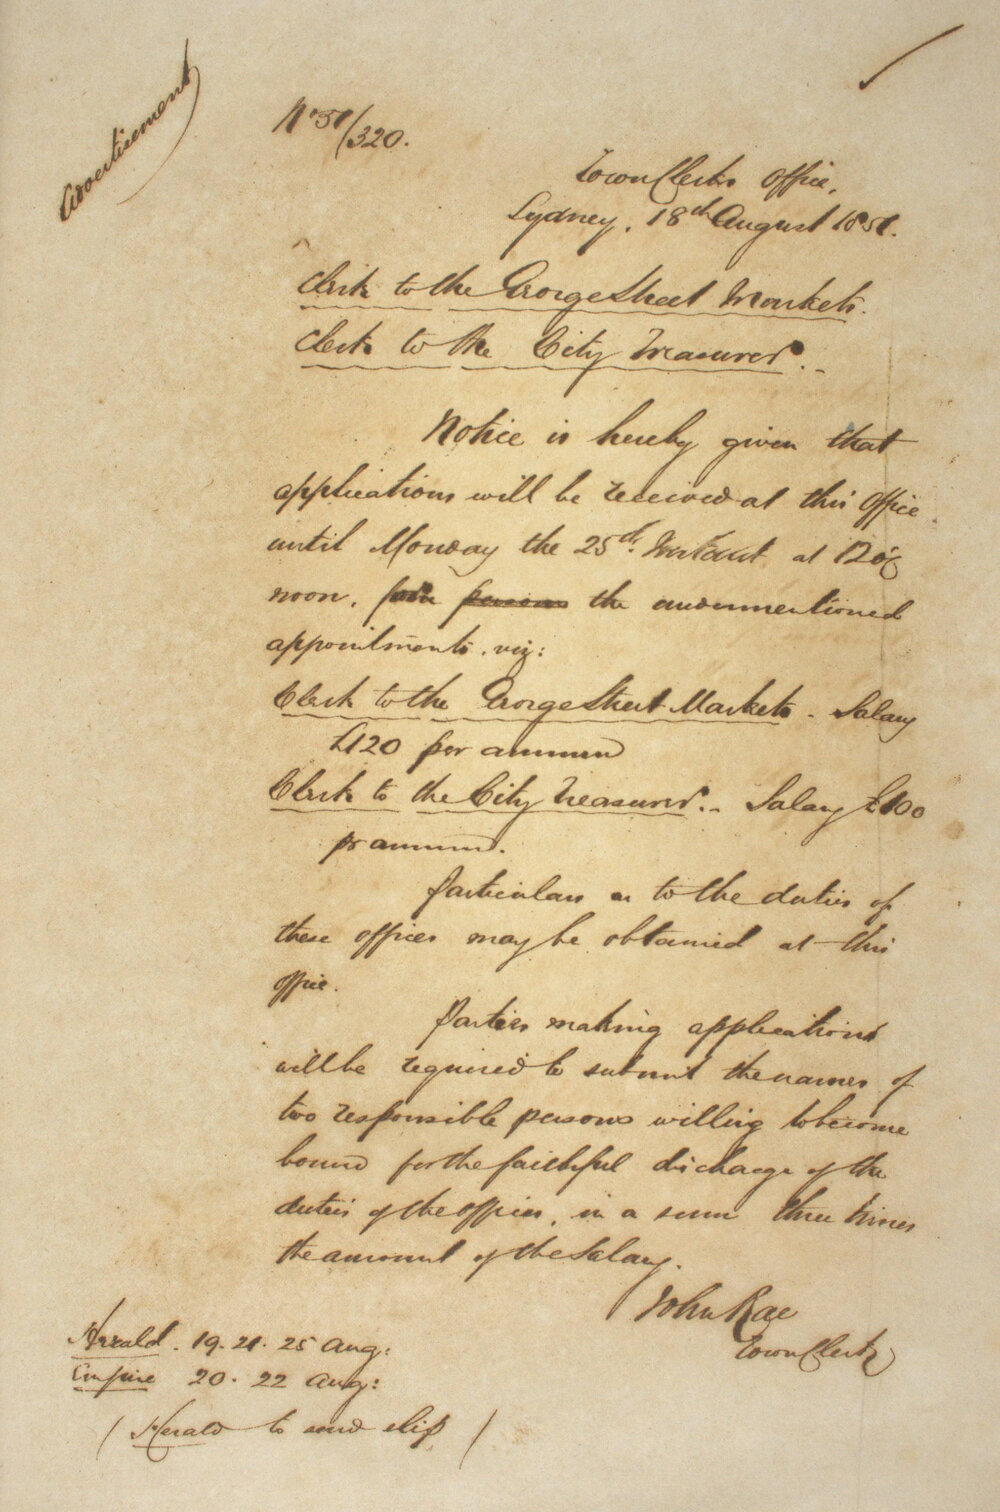 Advertisement
No 51/320.
Town Clerks Office,
Sydney, 18th August 1851.
Clerk to the George Street Markets.
Clerk to the City Treasurer.-
Notice is hereby given that
applications will be received at this Office
until Monday the 25th Instant at 12 o'c
noon, for the undermentioned
appointments. viz:
Clerk to the George Street Markets - Salary
£120 per annum
Clerk to the City Treasurer.- Salary £100
pr annum.
Particulars as to the duties of
these offices may be obtained at this
office.
Parties making applications
will be required to submit the names of
two responsible persons willing to become
bound for the faithful discharge of the
duties of the offices, in a sum three times
the amount of the Salary.
John Rae
Town Clerk
Herald. 19. 21. 25 Aug:
Empire 20. 22 Aug:
( Herald to send slip )